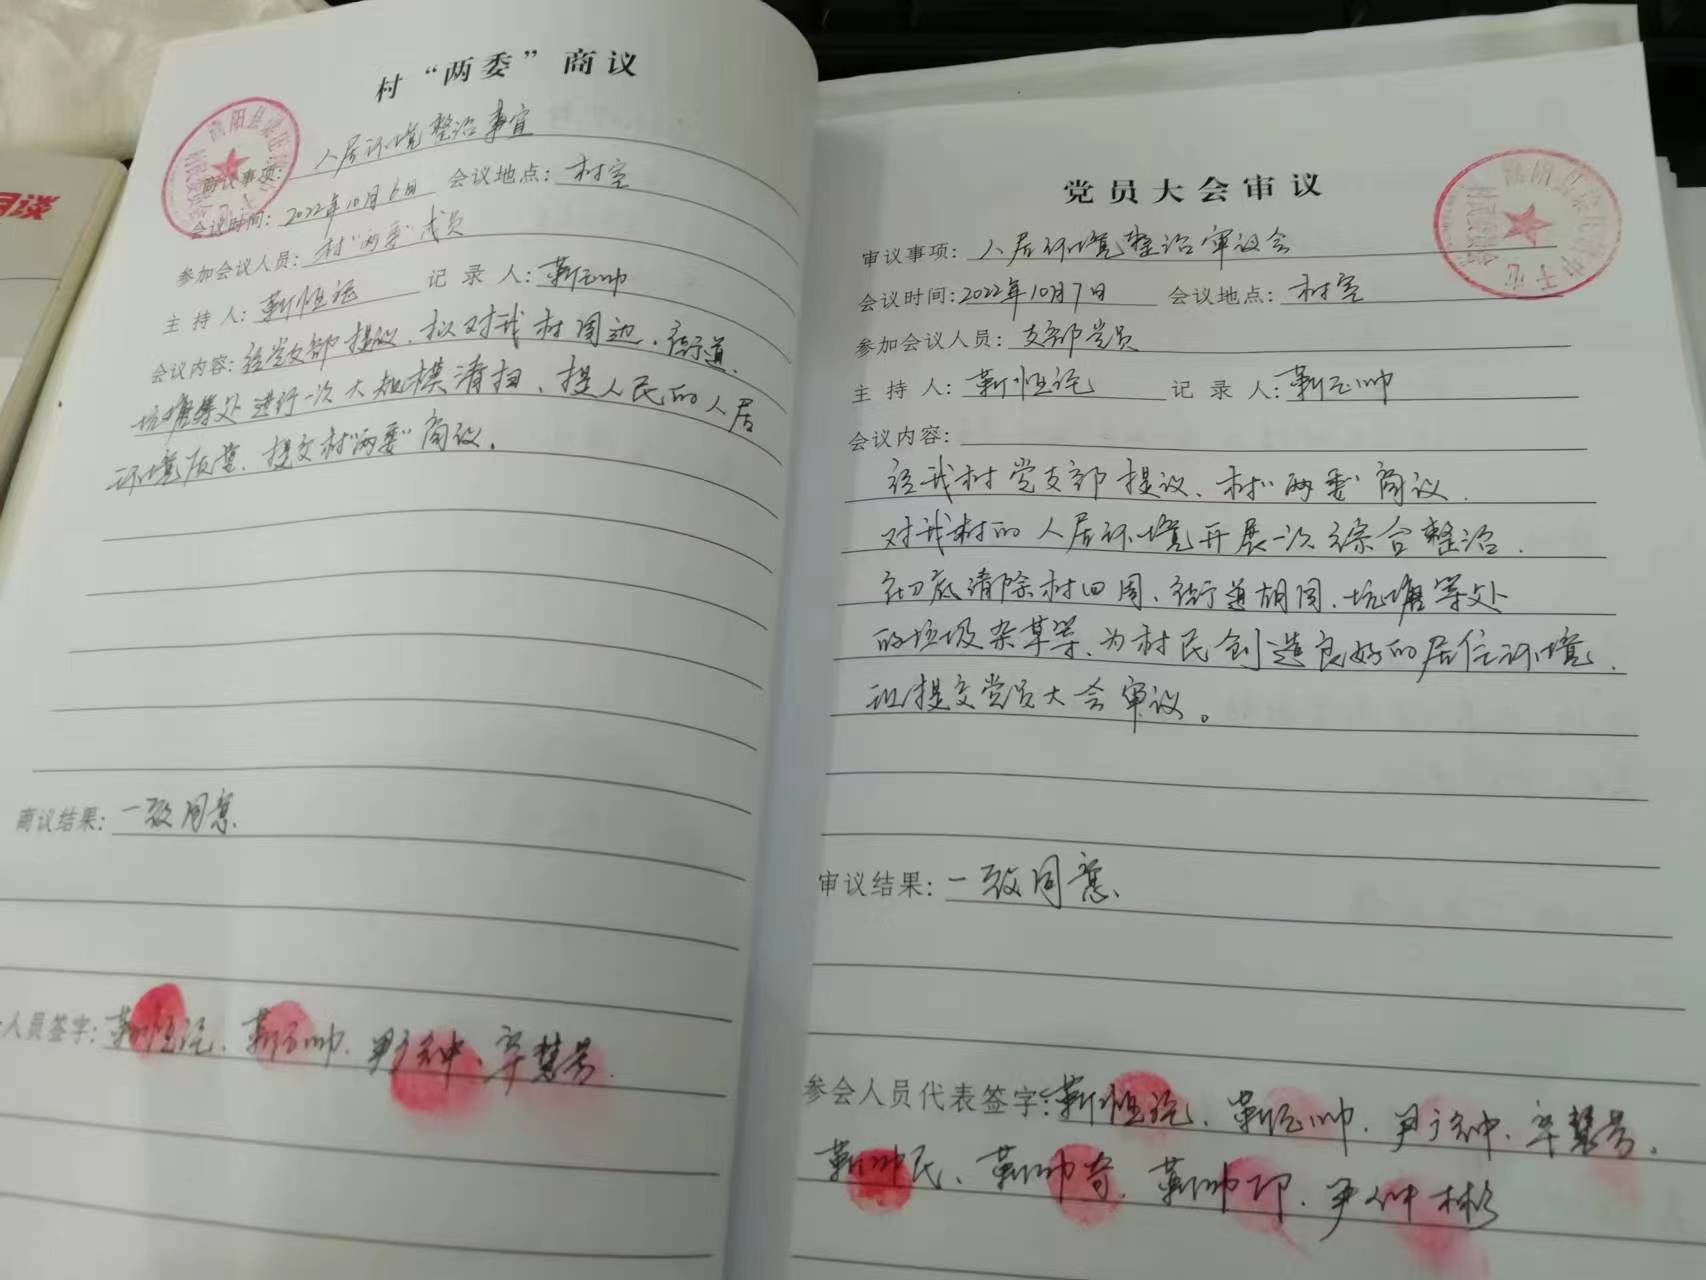 村“两委”商议
商议事项：人居环境整治事宜
会议时间：2022年10月6日 会议地点：村室
参加会议人员：村“两委”成员
主持人：靳恒 记录人：靳 帅
会议内容：经党支部提议、拟对我村周边、街道、
坑塘等处进行一次大规模清扫、提人民的人居
环境质量、提交村“两委”商议。
商议结果：一致同意
人员签字：靳恒 、靳 帅、尹 钟、辛慧芳
党员大会审议
审议事项：人居环境整治审议会
会议时间：2022年10月7日 会议地点：村室
参加会议人员：支部党员
主持人：靳恒 记录人：靳 帅
会议内容：
经我村党支部提议、村“两委”商议、
对我村的人居环境开展一次综合整治、
彻底清除村四周、街道胡同、坑塘等处
的垃圾杂草等、为村民创造良好的居住环境、
现提交党员大会审议。
审议结果：一致同意
参会人员代表签字：靳恒 、靳 帅、尹 钟、辛慧芳、
靳 民、靳帅奇、靳帅 、尹 彬
谈